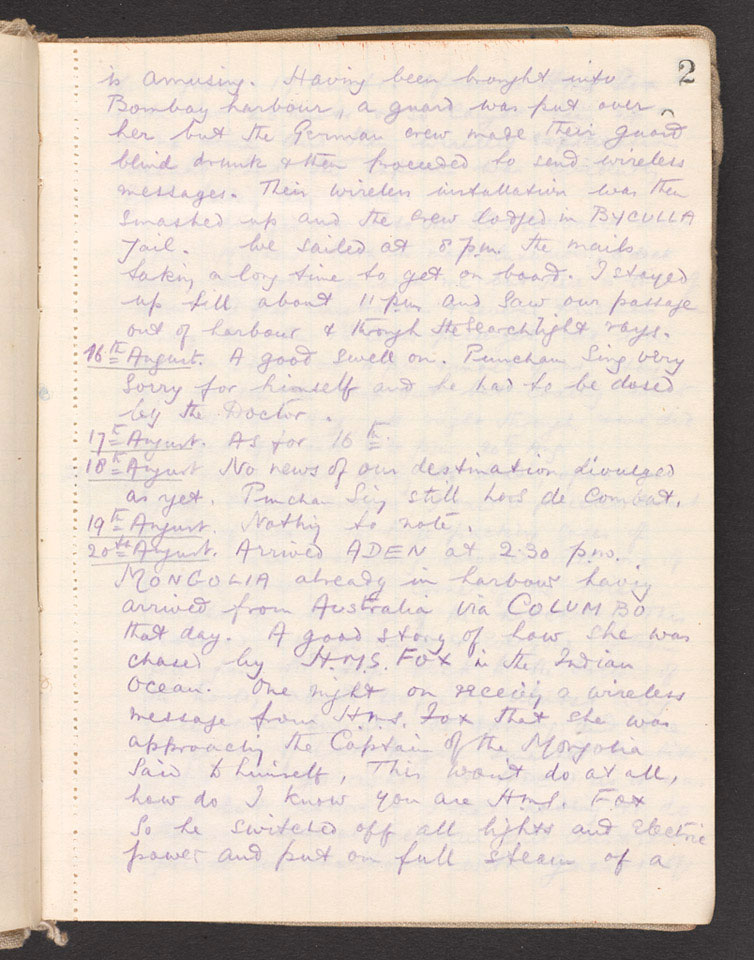 2
is amusing. Having been brought into
Bombay harbour, a guard was put over
her but the German crew made their guard
blind drunk & then proceeded to send wireless
messages. Their wireless installation was then
smashed up and the crew lodged in BYCULLA
Jail. We sailed at 8 p.m. the mails
taking a long time to get on board. I stayed
up till about 11 p.m. and saw our passage
out of harbour & through the searchlight rays.
16th August. A good swell on. Puncham Sing very
sorry for himself and he had to be dosed
by the Doctor.
17th August. As for 16th.
18th August No news of our destination divulged
as yet. Puncham Sing still hors de combat.
19th August. Nothing to note.
20th August. Arrived ADEN at 2.30 p.m.
MONGOLIA already in harbour having
arrived from Australia via COLUMBO
that day. A good story of how she was
chased by H.M.S. FOX in the Indian
Ocean. One night on receiving a wireless
message from H.M.S. Fox that she was
approaching the Captain of the Mongolia
said to himself, This wont do at all,
how do I know you are H.M.S. Fox
So he switched off all lights and electric
power and put on full steam of a